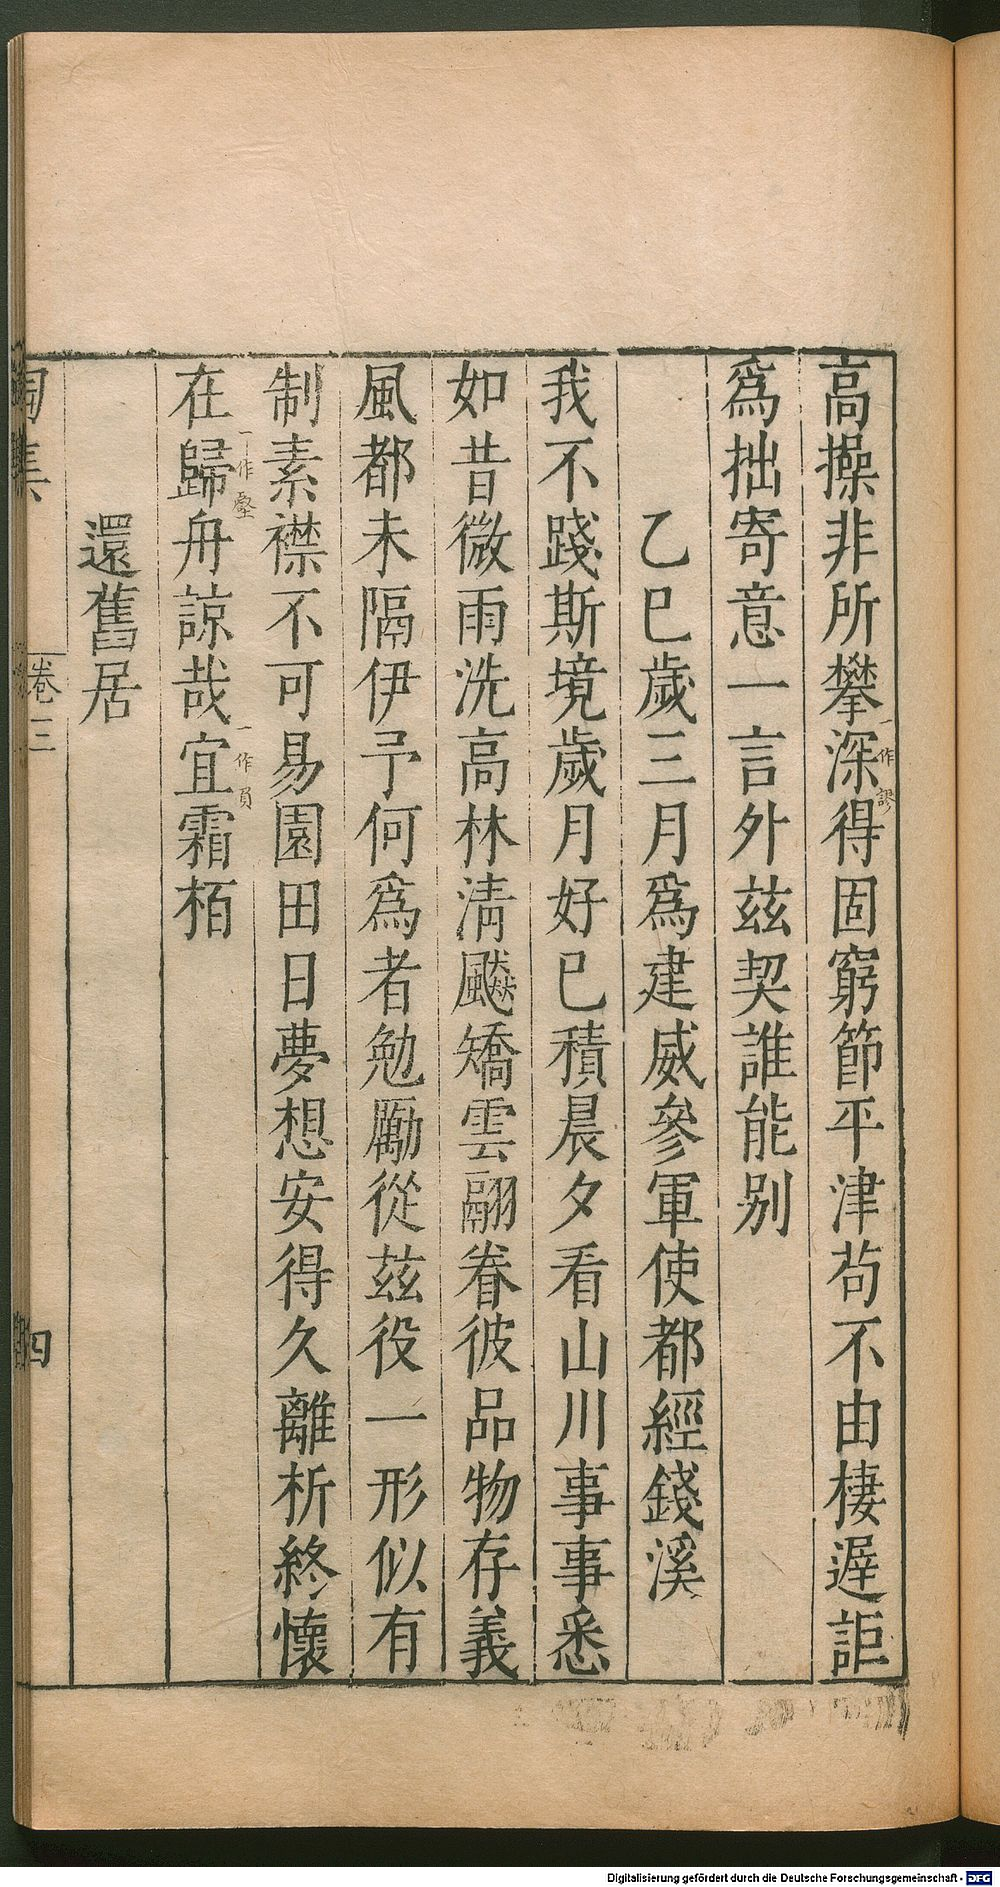 高操非所攀深一作謬得固窮節平津茍不由棲遲詎
爲拙寄意一言外茲契誰能别
乙巳歲三月爲建威參軍使都經錢溪
我不踐斯境歲月好已積晨夕看山川事事悉
如昔微雨洗高林清飈矯雲翮眷彼品物存義
風都未隔伊予何爲者勉勵從茲役一形似有
制素襟不可易園田日夢想安得久離析終懷
在歸一作壑舟諒哉宜一作員霜栢
還舊居
陶集 卷三 四
Digitalisierung gefördert durch die Deutsche Forschungsgemeinschaft - DFG